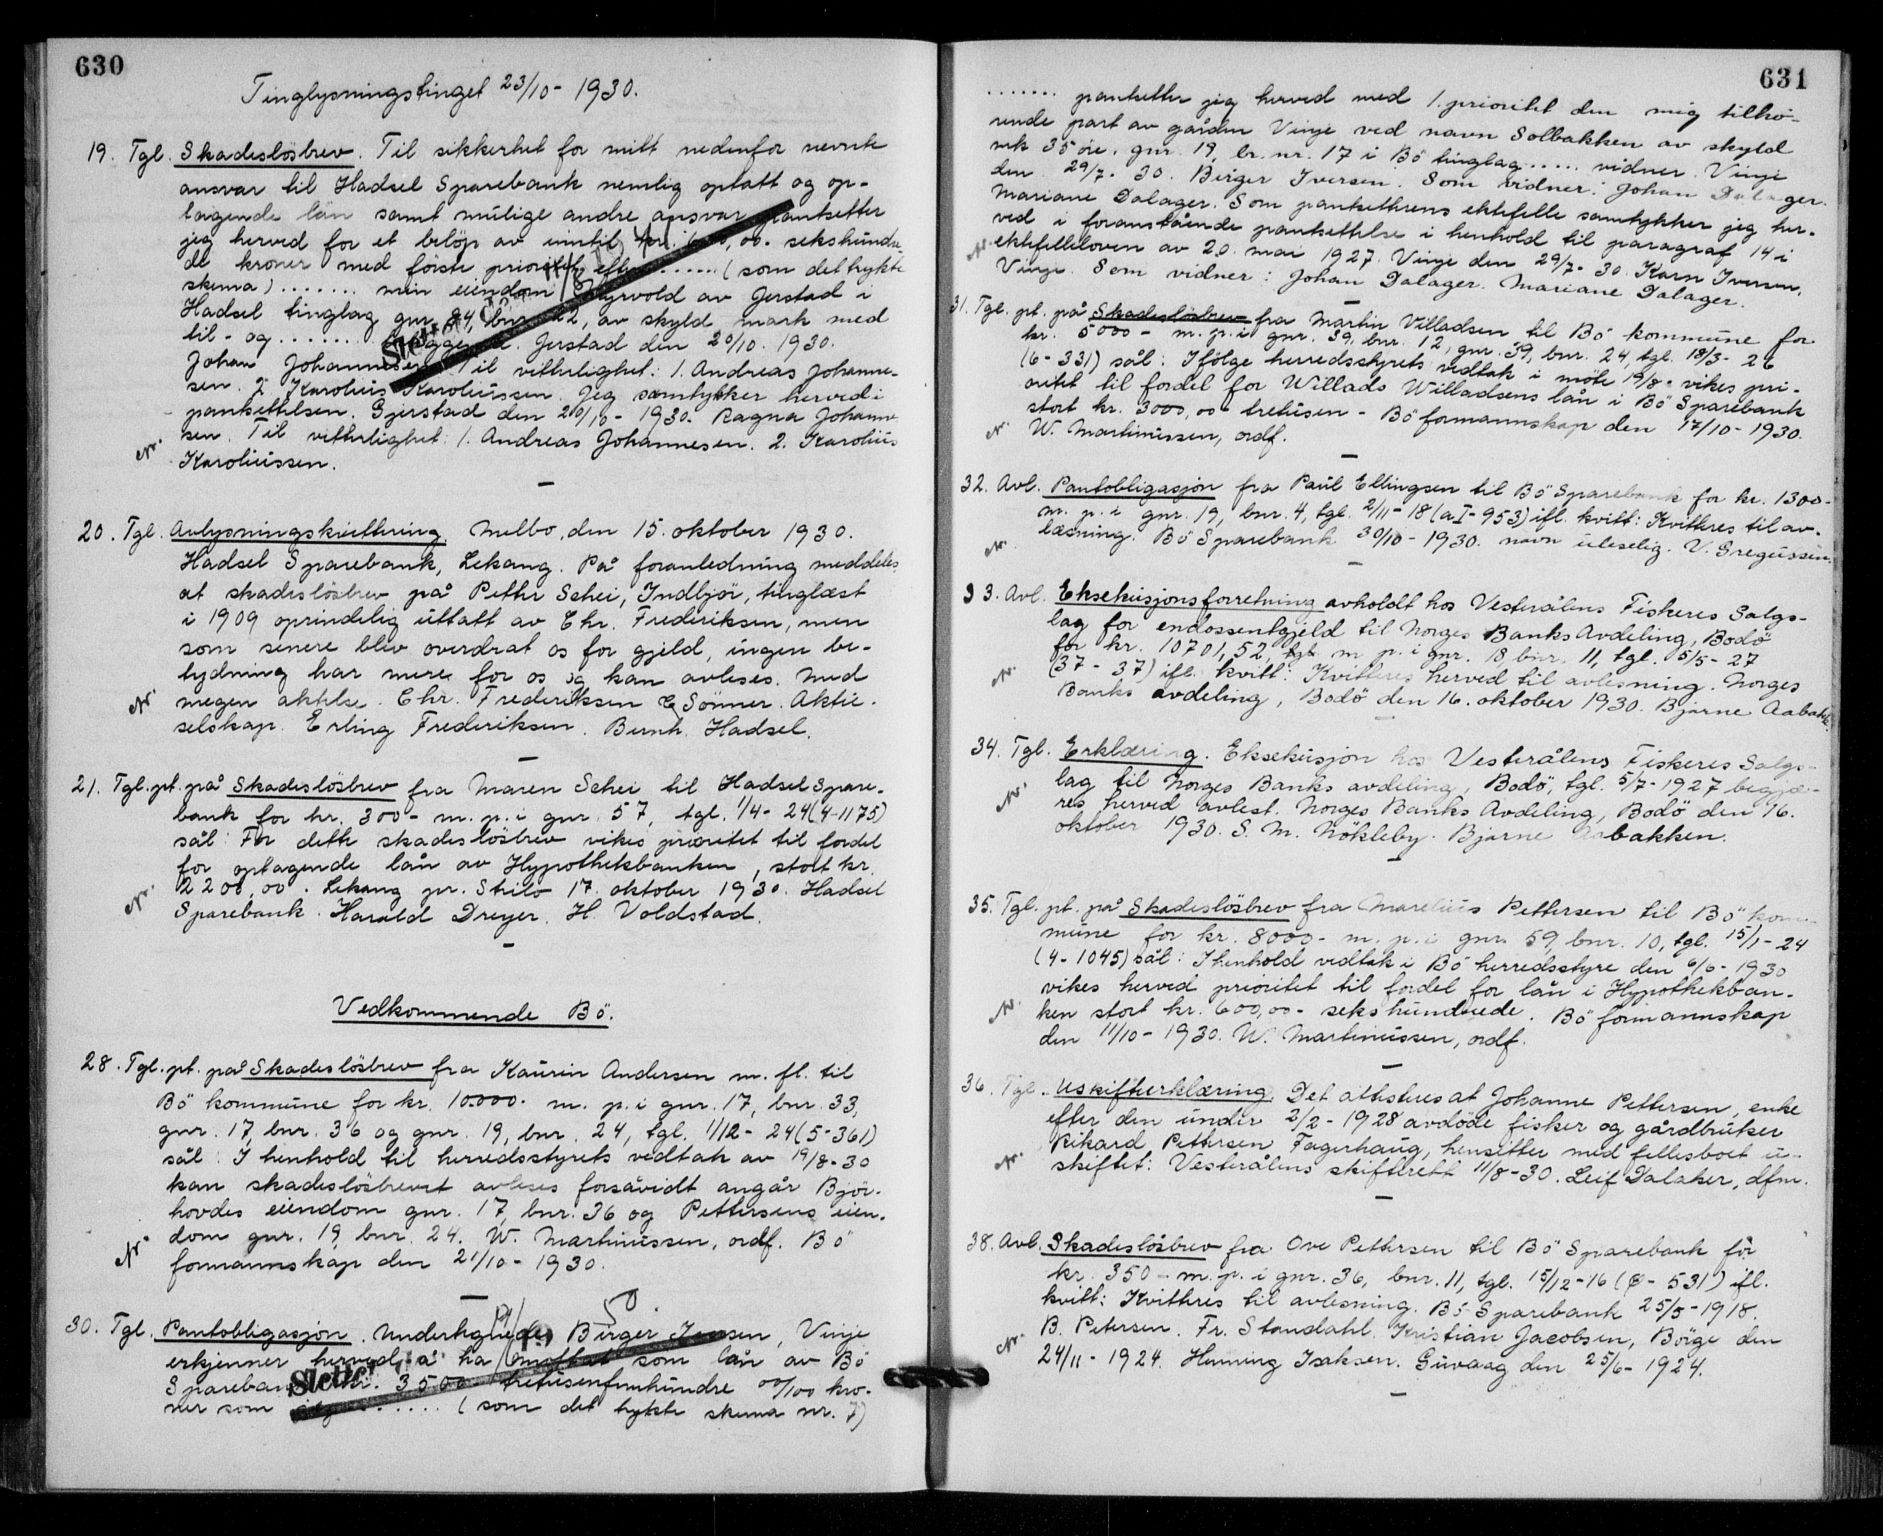 630
Tinglysningstinget 23/10 - 1930.
19. Tgl. Skadeslösbrev. Til sikkerhet for mitt nedenfor nevnte
ansvar til Hadsel Sparebank nemlig optatt og op-
tagende lån samt mulige andre ansvar pantsetter
jeg herved for et belöp av inntil kr. 600,00 - sekshundre
de kroner med förste prioritet efter ...... (som det trykte
skema) ....... min eiendom Myrvold av Jerstad i
Hadsel tinglag gnr. 84, bnr. 22, av skyld mark med
til- og ........ Jerstad den 20/10. 1930.
Johan Johannesen. Til vitterlighet: 1. Andreas Johanne-
sen. 2. Karolius Karoliussen. Jeg samtykker herved i
pantsettelsen. Gjerstad den 20/10 - 1930. Ragna Johanne-
sen. Til vitterlighet: 1. Andreas Johannesen. 2. Karolius
Karoliussen.
20. Tgl. Avlysningskvittering. Melbo, den 15. oktober 1930.
Hadsel Sparebank, Lekang. På foranledning meddeles,
at skadeslösbrev på Petter Schei, Indbjör, tinglæst
i 1909 oprindelig uttatt av Chr. Frederiksen, men
som senere blev overdrat os for gjeld, ingen be-
tydning har mere for os og kan avleses. Med
megen aktelse. Chr. Frederiksen & Sönner. Aktie-
selskap. Erling Frederiksen. Bernh. Hadsel.
21. Tgl. pt. på Skadeslösbrev fra Maren Schei til Hadsel Spare-
bank for kr. 300 - m. p. i gnr. 57, tgl. 1/4 - 24 (4-1175)
sål: For dette skadeslösbrev vikes prioritet til fordel
for optagende lån av Hypothekbanken, stort kr.
2200,00. Lekang pr. Strilo 17. oktober 1930. Hadsel
Sparebank. Harald Dreyer. H. Voldstad.
Vedkommende Bö.
28. Tgl. pt. på Skadeslösbrev fra Kaurin Andersen m. fl. til
Bö kommune for kr. 10000 - m. p. i gnr. 17, bnr. 33,
gnr. 17, bnr. 36 og gnr. 19, bnr. 24, tgl. 1/12 - 24 (5-361)
sål: I henhold til herredsstyrets vedtak av 19/8 - 30
kan skadeslösbrevet avleses forsåvidt angår Björ-
hovdes eiendom gnr. 17, bnr. 36 og Pettersens eien-
dom gnr. 19, bnr. 24. W. Martinussen, ordf. Bö
formannskap den 21/10 - 1930.
30. Tgl. Pantobligasjon. Undertegnede Birger Iversen, Vinje
erkjenner herved å ha mottat som lån av Bö
Sparebank kr. 3500 - tretusenfemhundre 00/100 kro-
ner som ...... (som det trykte skema nr. 7)
Slettet
631
....... pantsetter jeg herved med 1. prioritet den mig tilhö-
rende part av gården Vinje ved navn Solbakken av skyld
mk 35 öre, gnr. 19, br. nr. 17 i Bö tinglag ..... vidner. Vinje
den 29/7 - 30. Birger Iversen. Som vidner: Johan Dalager.
Mariane Dalager. Som pantsetterens ektefelle samtykker jeg her-
ved i foranstående pantsettelse i henhold til paragraf 14 i
ektefelleloven av 20. mai 1927. Vinje den 29/7 - 30. Karn Iversen,
Vinje. Som vidner: Johan Dalager. Mariane Dalager.
31. Tgl. pt. på Skadeslösbrev fra Martin Villadsen til Bö kommune for
kr. 5000 - m. p. i gnr. 39, bnr. 12, gnr. 39, bnr. 24, tgl. 18/3 - 26
(6-331) sål: Ifölge herredsstyrets vedtak i möte 19/8 - vikes pri-
oritet til fordel for Willads Willadsens lån i Bö Sparebank
stort kr. 3000,00 - tretusen - Bö formannskap den 17/10 - 1930.
W. Martinussen, ordf.
32. Avl. Pantobligasjon fra Paul Ellingsen til Bö Sparebank for kr. 1300 -
m. p. i gnr. 19, bnr. 4, tgl. 2/11 - 18 (a I - 953) ifl. kvitt: Kvitteres til av-
læsning. Bö Sparebank 30/10 - 1930. navn uleselig. V. Gregussen.
33. Avl. Eksekusjonsforretning avholdt hos Vesterålens Fiskeres Salgs-
lag for endossentgjeld til Norges Banks Avdeling, Bodö
for kr. 10701,52 tgl. m p. i gnr. 18, bnr. 11, tgl. 5/5 - 27
(37-37) ifl. kvitt: Kvitteres herved til avlesning. Norges
Banks avdeling, Bodö den 16. oktober 1930. Bjarne Aabakke
34. Tgl. Erklæring. Eksekusjon hos Vesterålens Fiskeres Salgs-
lag til Norges Banks avdeling, Bodö, tgl. 5/7 - 1927 begjæ-
res herved avlest. Norges Banks Avdeling, Bodö den 16.
oktober 1930. S. M. Nökleby. Bjarne Aabakken.
35. Tgl. pt. på Skadeslösbrev fra Marelius Pettersen til Bö kom-
mune for kr. 8000 - m. p. i gnr. 59, bnr. 10, tgl. 15/1 - 24
(4-1045) sål: I henhold vedtak i Bö herredsstyre den 6/6 - 1930
vikes herved prioritet til fordel for lån i Hypothekban-
ken stort kr. 600,00 - sekshundrede. Bö formannskap
den 11/10 - 1930. W. Martinussen, ordf.
36. Tgl. Uskifteerklæring. Det attesteres at Johanne Pettersen, enke
efter den under 2/2 - 1928 avdöde fisker og gårdbruker
Rikard Pettersen Fagerhaug, hensitter med fellesboet u-
skiftet: Vesterålens skifterett 11/8 - 30. Leif Dalaker, dfm.
38. Avl. Skadeslösbrev fra Ove Pettersen til Bö Sparebank för
kr. 350 - m. p. i gnr. 36, bnr. 11, tgl. 15/12 - 16 ( - 531) ifl.
kvitt: Kvitteres til avlesning. Bö Sparebank 25/5 - 1918.
B. Petersen. Fr. Standahl. Kristian Jacobsen, Böige den
24/11 - 1924. Henning Isaksen. Guvaag den 25/6 - 1924.